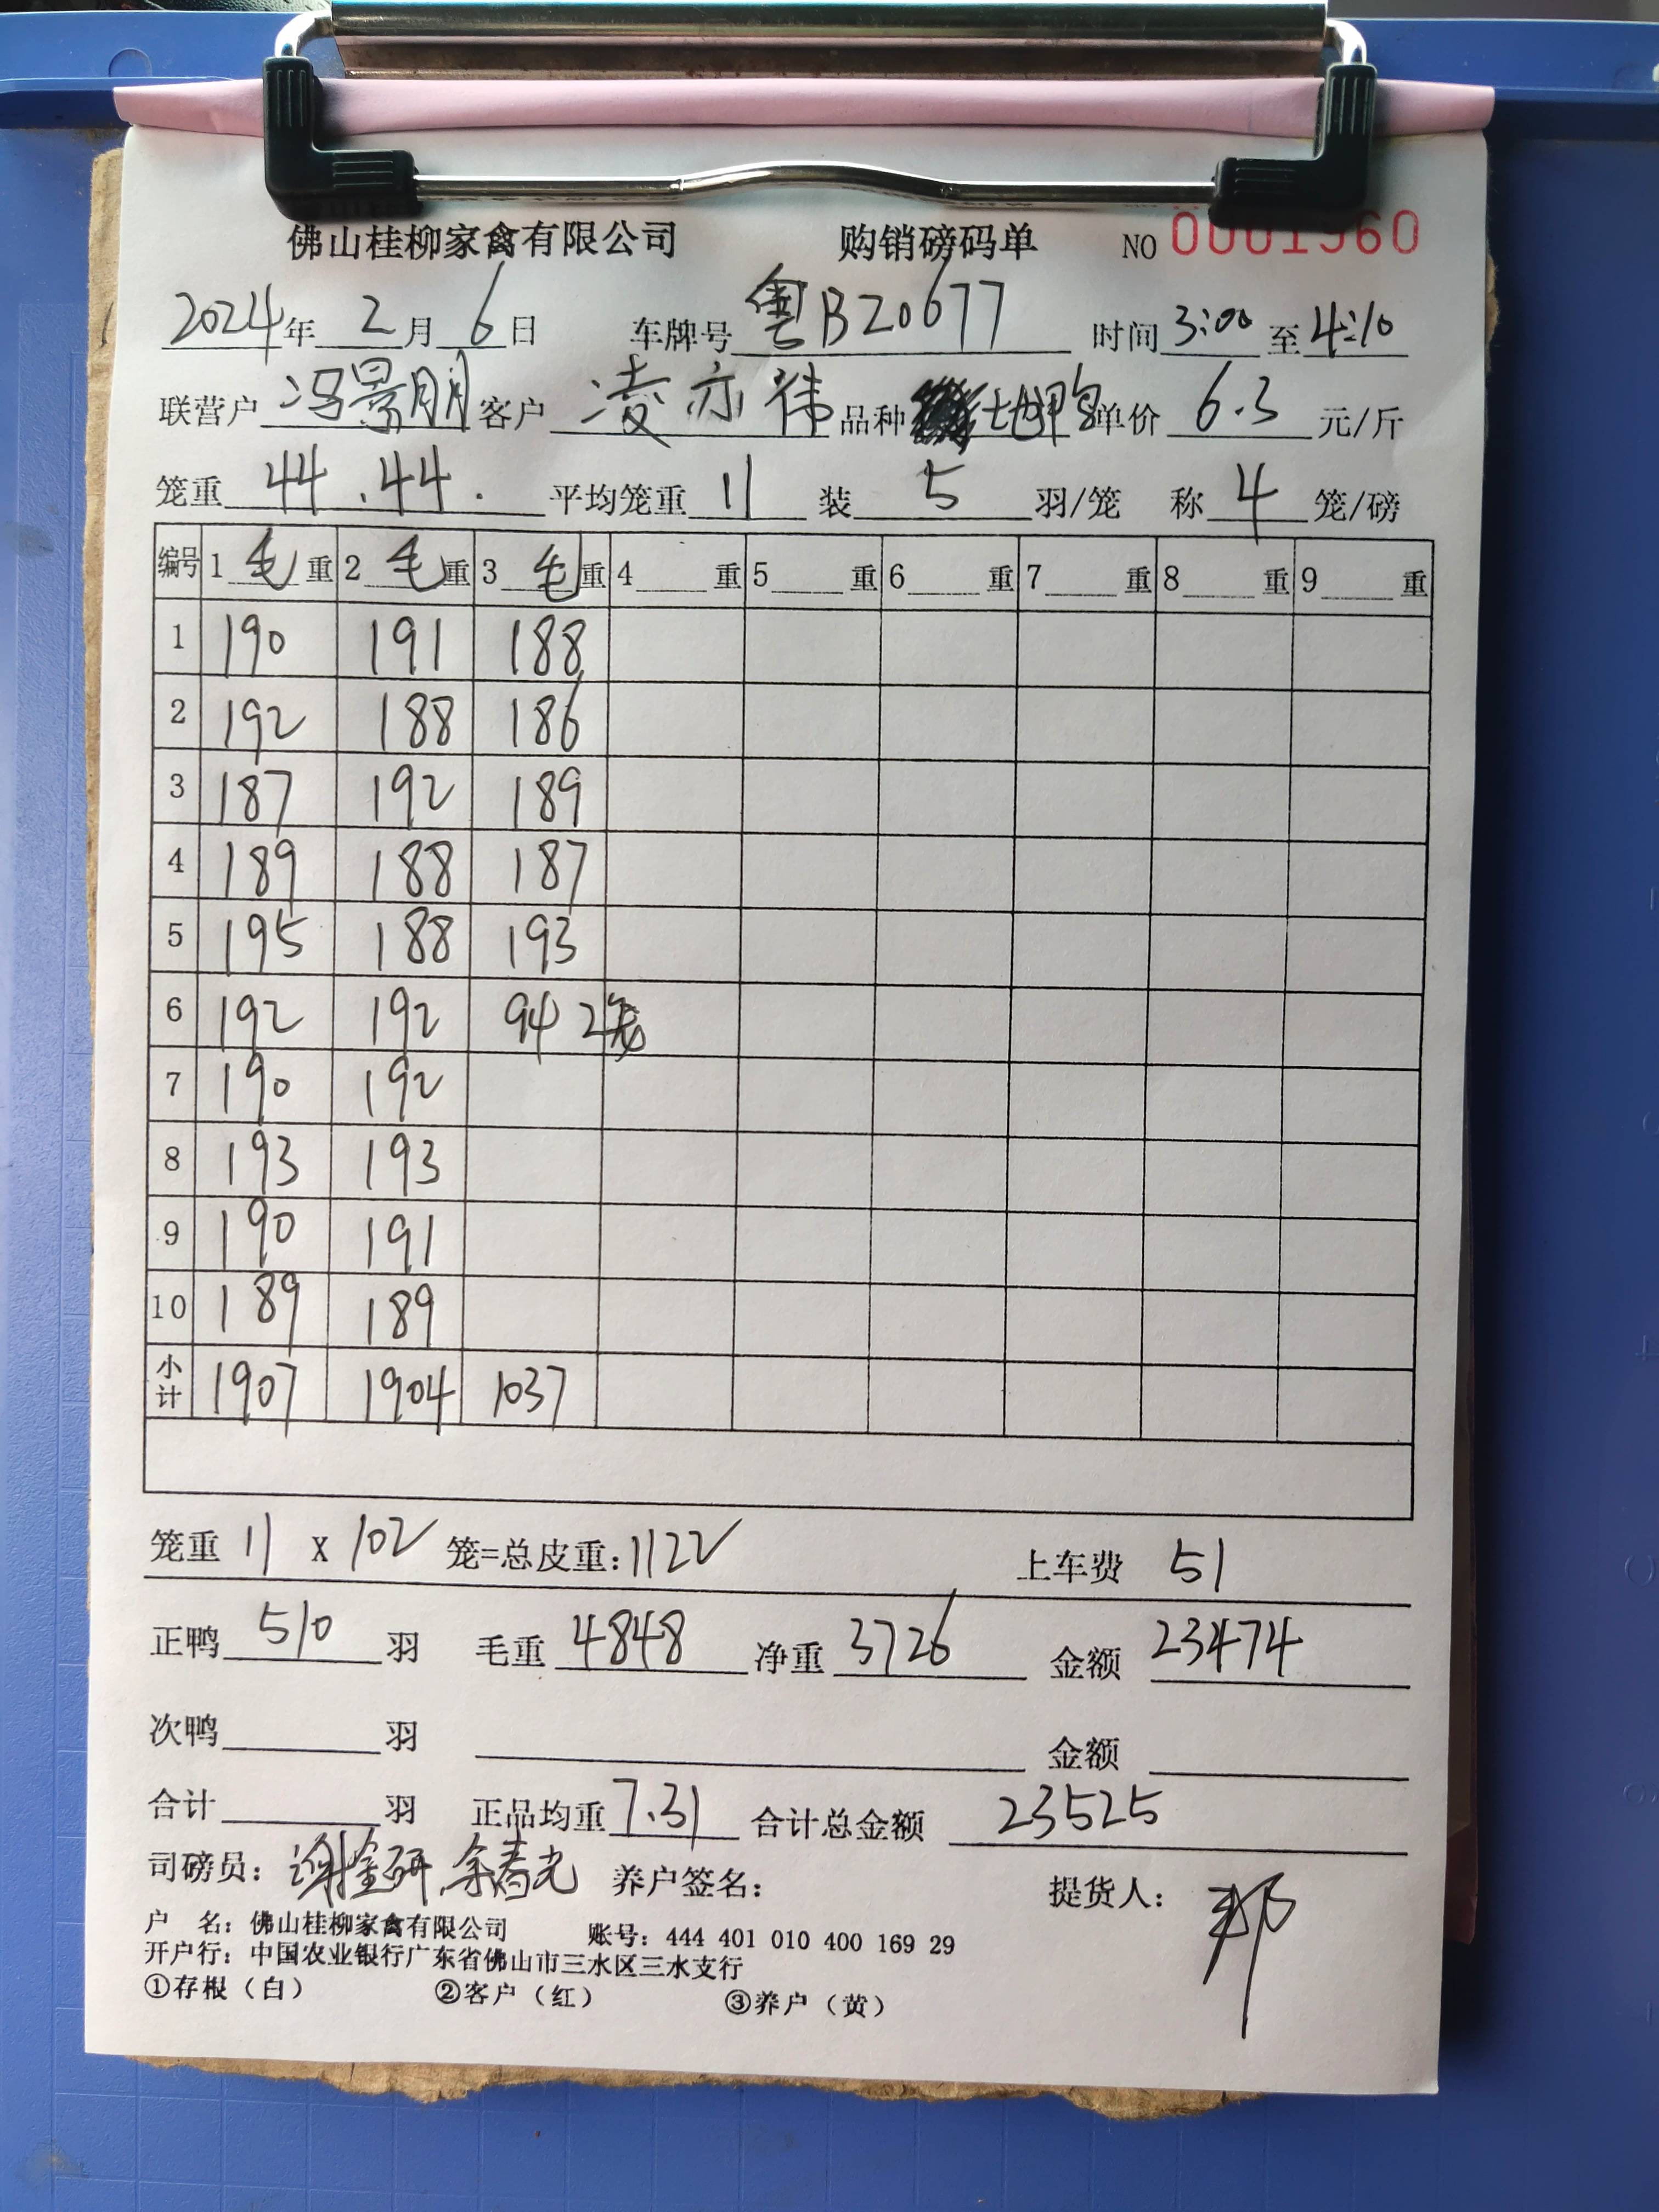 佛山桂柳家禽有限公司 购销磅码单 NO 0001560
2024年 2月 6日 车牌号 粤BZ0677 时间 3:00 至 4:10
联营户 冯景朋 客户 凌亦祎 品种 土地鸭 单价 6.3 元/斤
笼重 44.44. 平均笼重 11 装 5 羽/笼 称 4 笼/磅
编号 1 毛 重 2 毛 重 3 毛 重 4 重 5 重 6 重 7 重 8 重 9 重
1 190 191 188
2 192 188 186
3 187 192 189
4 189 188 187
5 195 188 193
6 192 192 94 2笼
7 190 192
8 193 193
9 190 191
10 189 189
小计 1907 1904 1037
笼重 11 X 102 笼=总皮重: 1122 上车费 51
正鸭 510 羽 毛重 4848 净重 3726 金额 23474
次鸭 羽 金额
合计 羽 正品均重 7.31 合计总金额 23525
司磅员: 余春光 养户签名: 提货人:
户 名: 佛山桂柳家禽有限公司 账号: 444 401 010 400 169 29
开户行: 中国农业银行广东省佛山市三水区三水支行
①存根（白） ②客户（红） ③养户（黄）